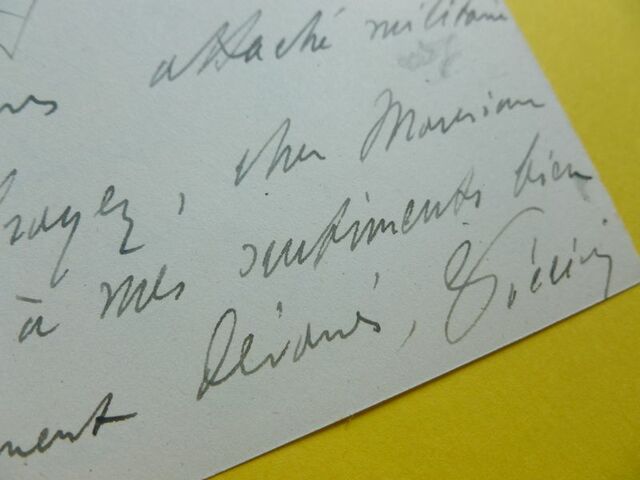 attaché militaire
, cher Monsieur
à mes sentiments bien
dévoués,